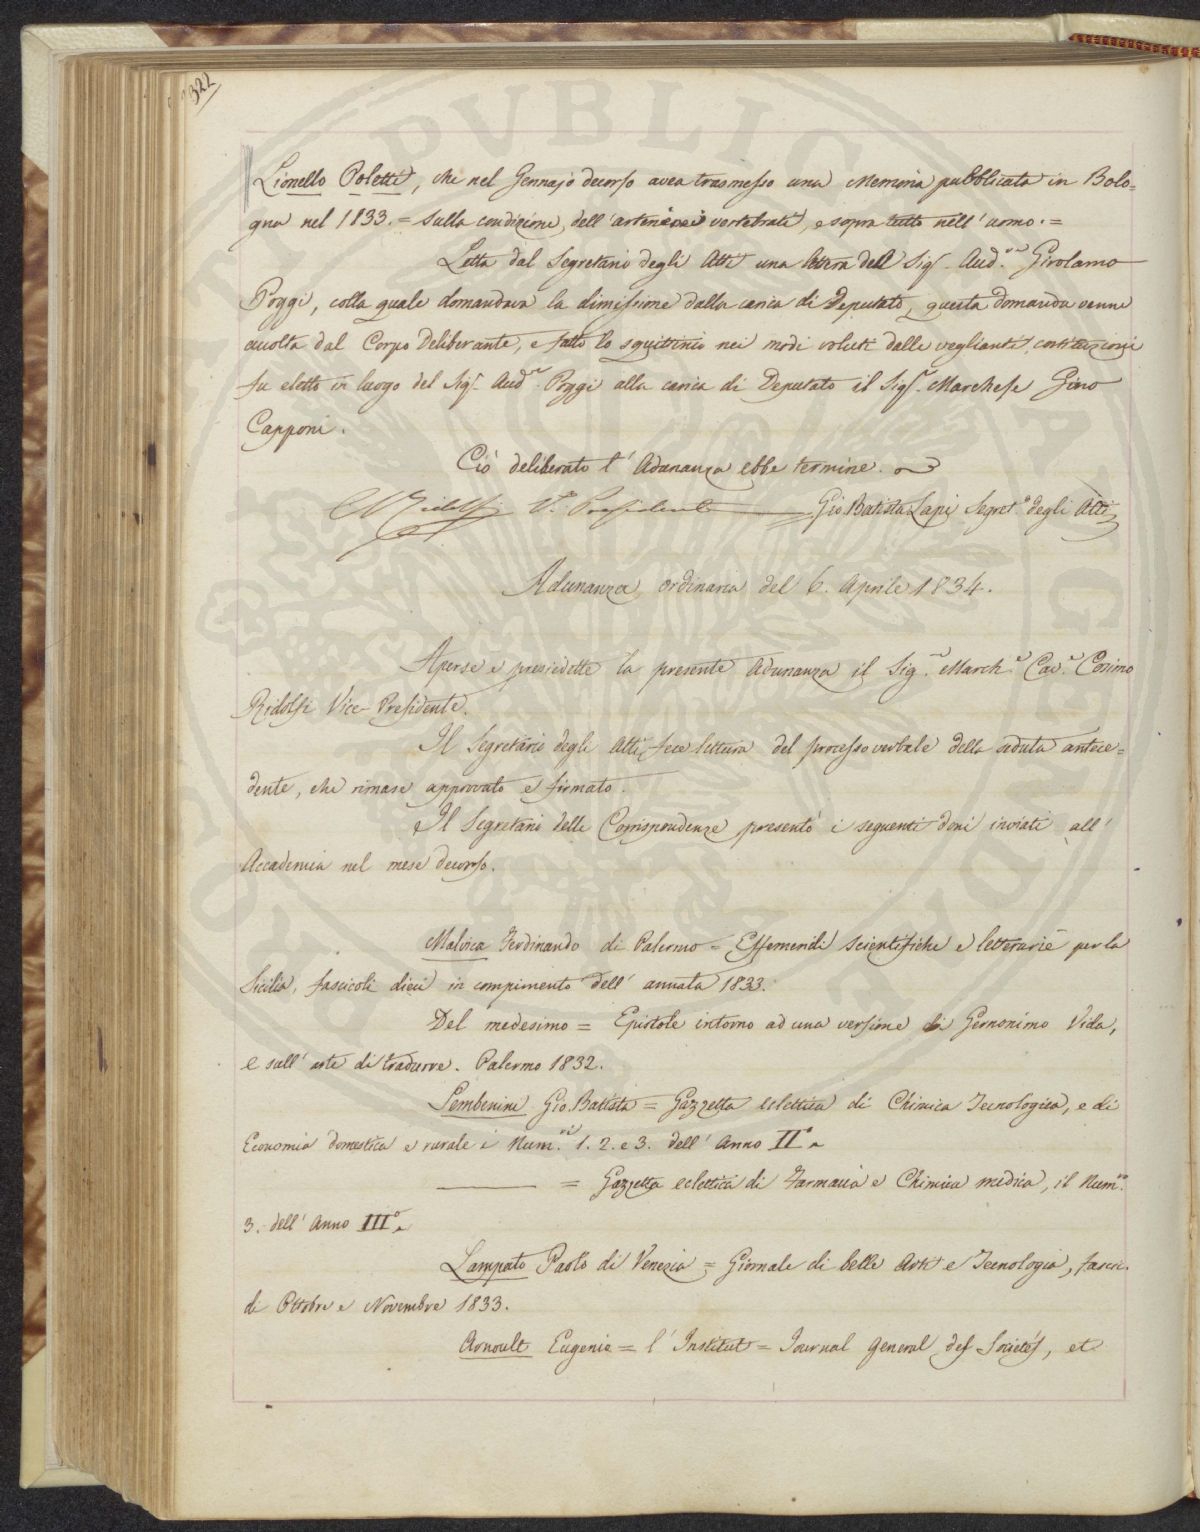 322
Lionello Poletti, che nel Gennajo decorso avea trasmesso una Memoria pubblicata in Bolo=
gna nel 1833. = Sulla condizione dell'arterie vertebrali, e sopra tutto nell'uomo. =
Letta dal Segretario degli Atti una lettera del Sig.r Aud.re Girolamo
Poggi, colla quale domandava la dimissione dalla carica di Deputato, questa domanda venne
accolta dal Corpo Deliberante, e fatto lo squittinio nei modi voluti dalle veglianti costituzioni
fu eletto in luogo del Sig.r Aud.re Poggi alla carica di Deputato il Sig.r Marchese Gino
Capponi.
Ciò deliberato l'Adunanza ebbe termine.
C Ridolfi V. Presidente Gio. Batista Lapi Segret.o degli Atti
Adunanza ordinaria del 6. Aprile 1834.
Aperse e presiedette la presente Adunanza il Sig.r March.e Cav.e Cosimo
Ridolfi Vice-Presidente.
Il Segretario degli Atti fece lettura del processo verbale della seduta antece=
dente, che rimase approvato e firmato.
Il Segretario delle Corrispondenze presentò i seguenti doni inviati all'
Accademia nel mese decorso.
Malvica Ferdinando di Palermo = Effemeridi scientifiche e letterarie per la
Sicilia, fascicoli dieci in compimento dell'annata 1833.
Del medesimo = Epistole intorno ad una versione di Geronimo Vida,
e sull'arte di tradurre. Palermo 1832.
Sembenini Gio. Batista = Gazzetta eclettica di Chimica Tecnologica, e di
Economia domestica e rurale i Num.ri 1. 2. e 3. dell'Anno II.o
——— = Gazzetta eclettica di Farmacia e Chimica medica, il Num.ro
3. dell'Anno III.o
Lampato Paolo di Venezia = Giornale di belle Arti e Tecnologia, fascic.
di Ottobre e Novembre 1833.
Arnoult Eugenie = l'Institut = Journal general des Societés, et
PUBLIC